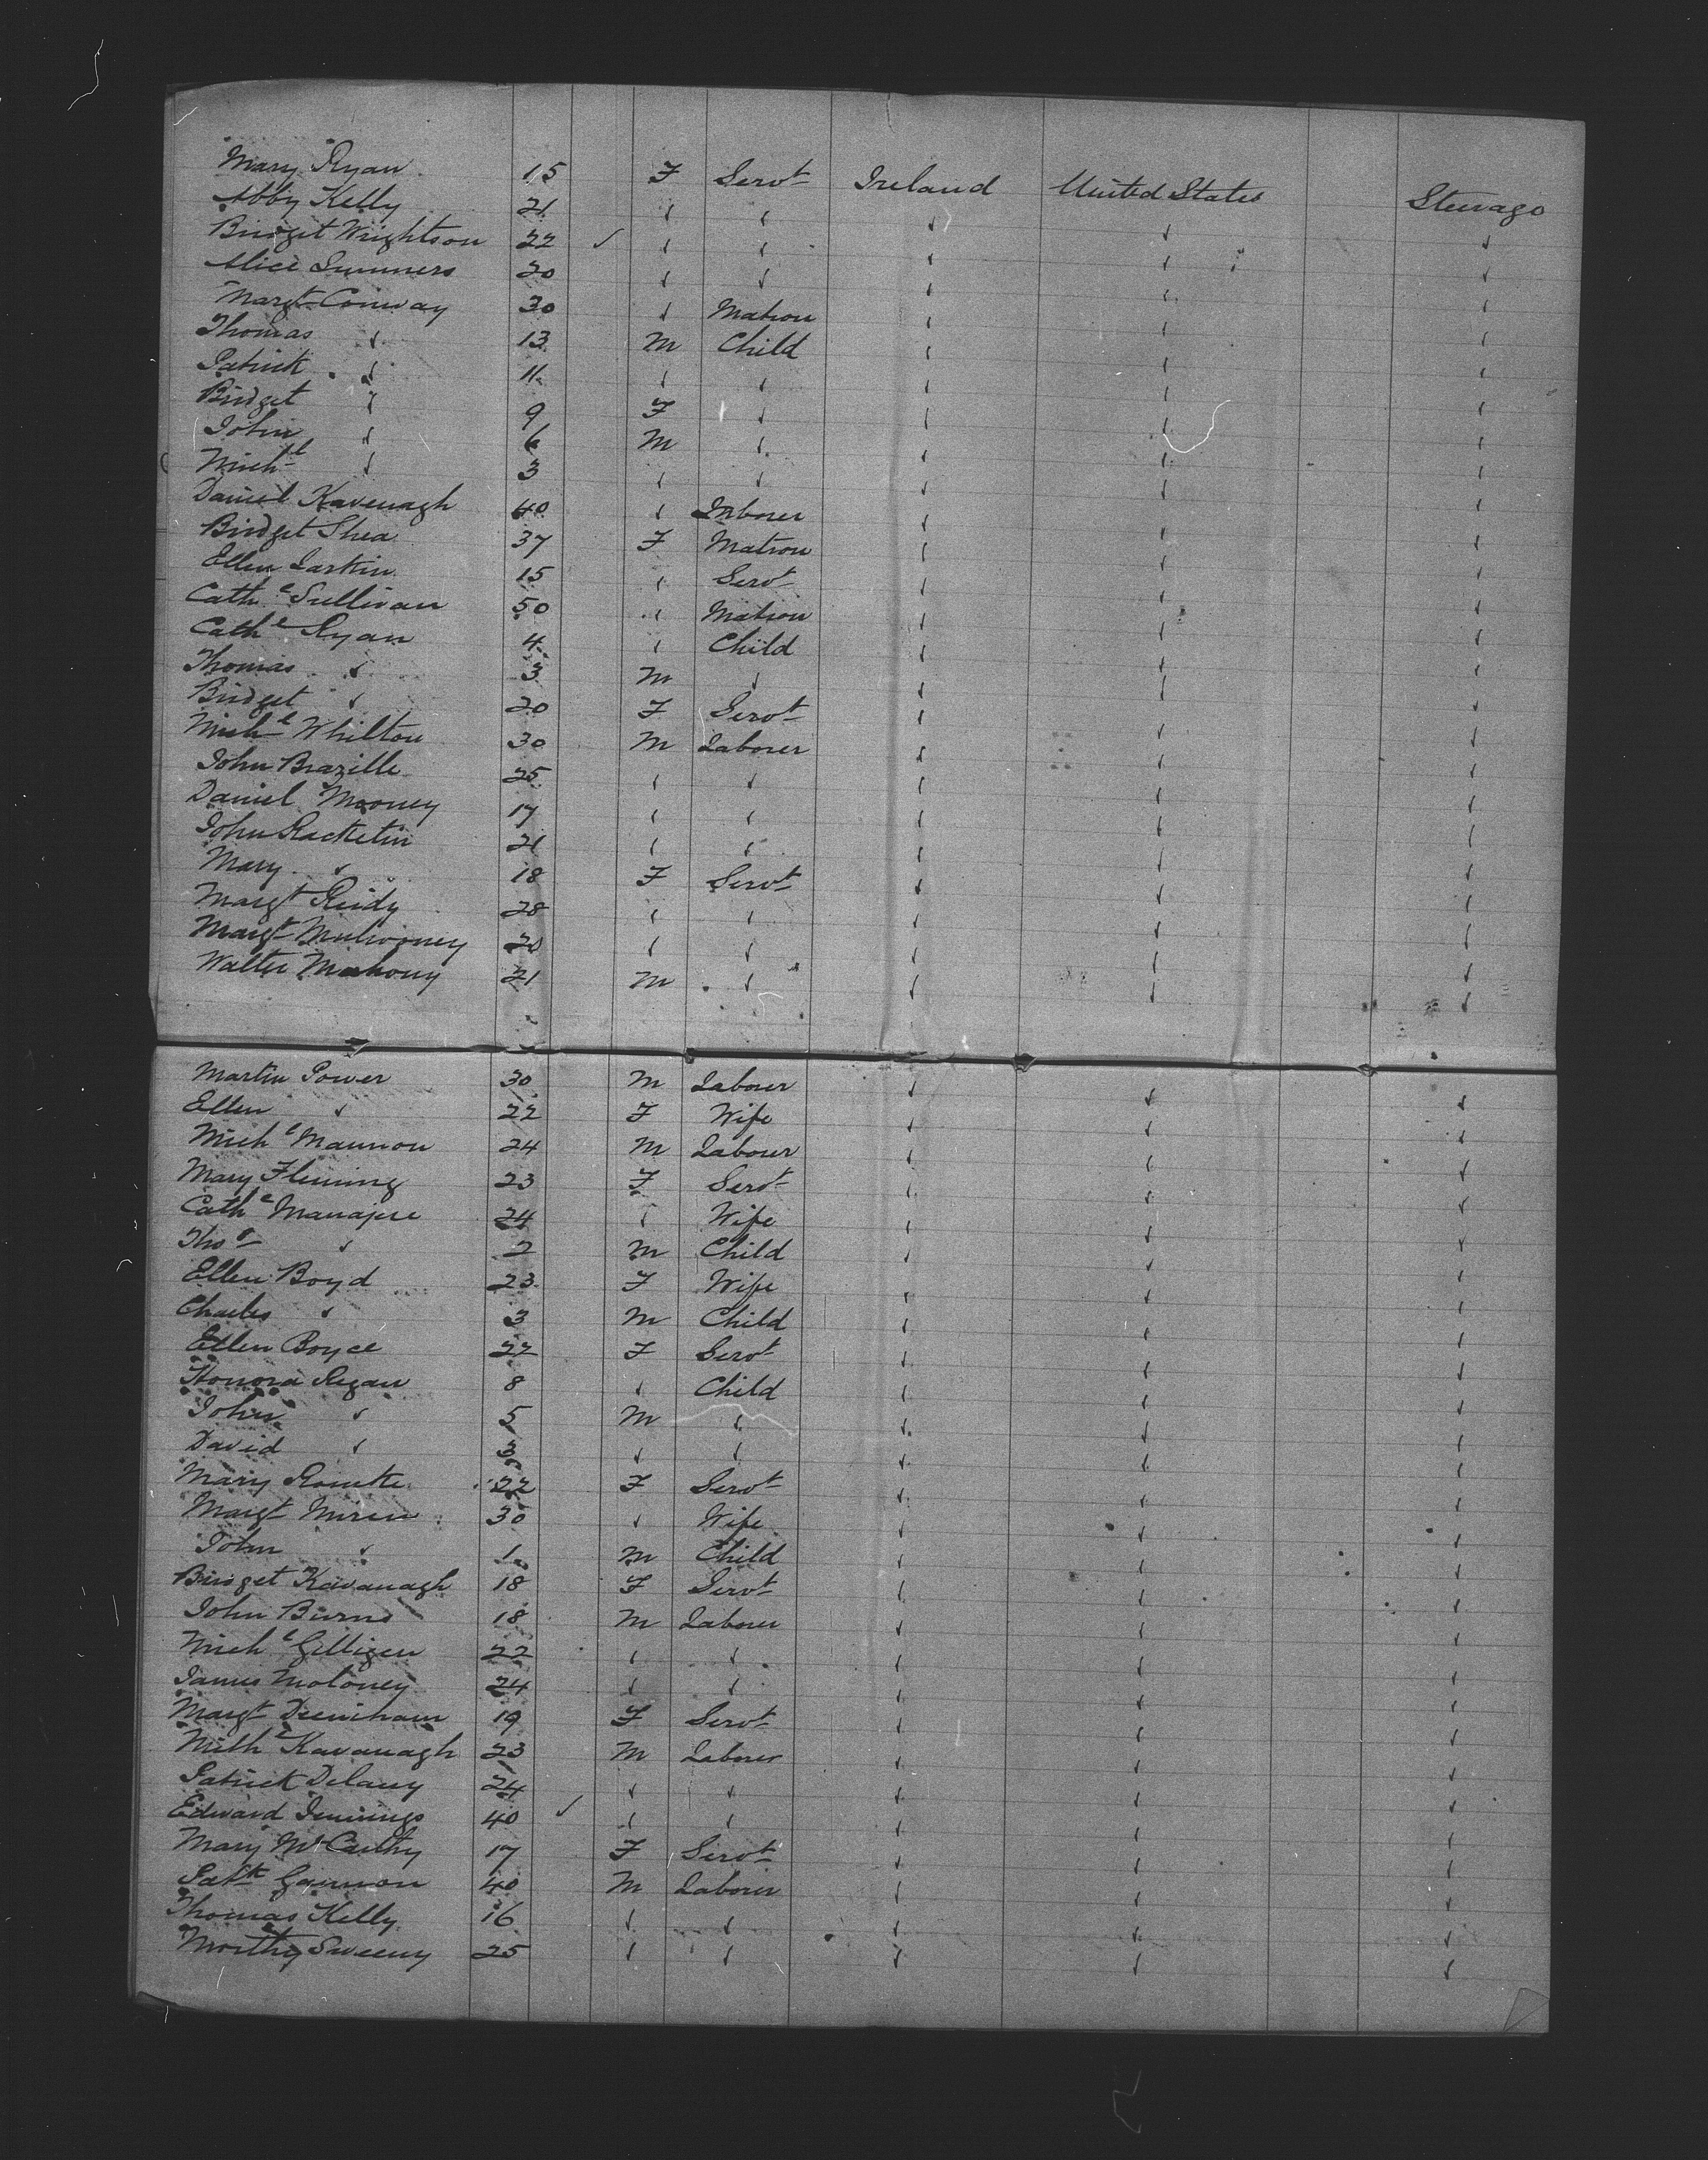 Mary Ryan 15 F Servt Ireland United States Steerage
Abby Kelly 21 " " " " "
Bridget Wrightson 22 ✓ " " " " "
Alice Summers 20 " " " " "
Margt Conway 30 " Matron " " "
Thomas " 13 M Child " " "
Patrick " 11 " " " " "
Bridget " 9 F " " " "
John " 6 M " " " "
Michl " 3 " " " " "
Daniel Kavenagh 40 " Laborer " " "
Bridget Shea 37 F Matron " " "
Ellen Larkin 15 " Servt " " "
Cathe Sullivan 50 " Matron " " "
Cathe Ryan 4 " Child " " "
Thomas " 3 M " " " "
Bridget " 20 F Servt " " "
Michl Whilton 30 M Laborer " " "
John Brazille 25 " " " " "
Daniel Mooney 17 " " " " "
John Racketin 21 " " " " "
Mary " 18 F Servt " " "
Margt Reidy 28 " " " " "
Margt Mulrooney 20 " " " " "
Walter Mahony 21 M " " " "
Martin Power 30 M Laborer " " "
Ellen " 22 F Wife " " "
Michl Mannon 24 M Labourer " " "
Mary Fleming 23 F Servt " " "
Cathe 24 " Wife " " "
Thos " 2 M Child " " "
Ellen Boyd 23 F Wife " " "
Charles " 3 M Child " " "
Ellen Boyce 22 F Servt " " "
Honora Regan 8 " Child " " "
John " 5 M " " " "
David " 3 " " " " "
Mary Rourke 22 F Servt " " "
Margt 30 " Wife " " "
John " 1 M Child " " "
Bridget Kavanagh 18 F Servt " " "
John Burns 18 M Laborer " " "
Michl Gilligen 22 " " " " "
James Moloney 24 " " " " "
Margt Deenihan 19 F Servt " " "
Michl Kavanagh 23 M Laborer " " "
Patrick Delany 24 " " " " "
Edward Jennings 40 ✓ " " " " "
Mary McCarthy 17 F Servt " " "
Patk Gannon 40 M Laborer " " "
Thomas Kelly 16 " " " " "
Morthy Sweeny 25 " " " " "